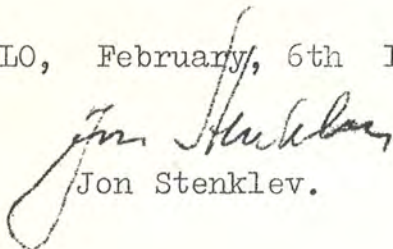 LO, February, 6th 1
Jon Stenklev
Jon Stenklev.